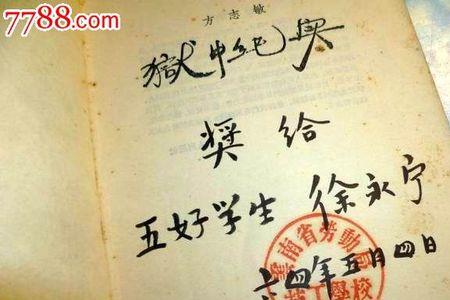 7788.com
方志敏
獄中纪實
奨给
五好学生 徐永宁
六四年五月四日
南省劳動
技工學校